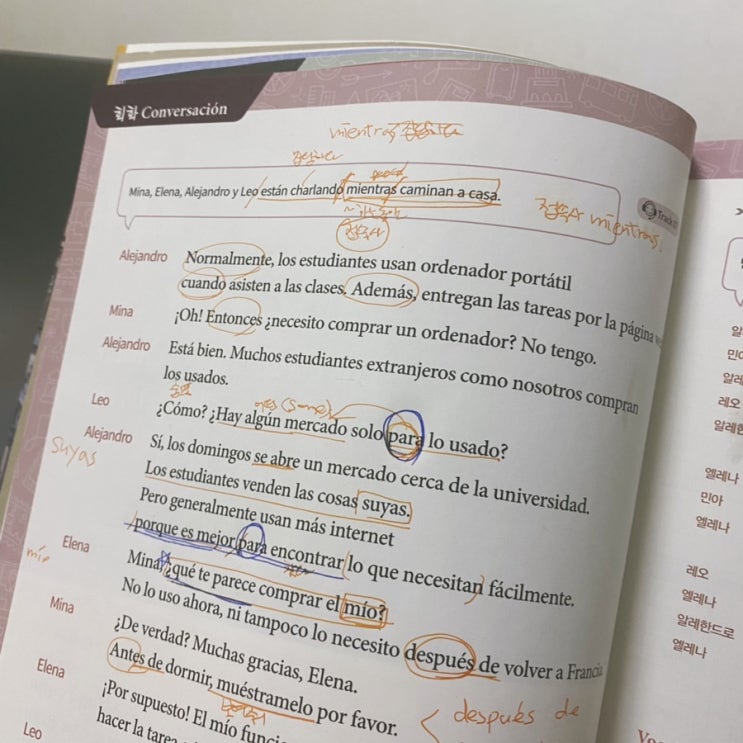 회화 Conversación
mientras 접속사
Mina, Elena, Alejandro y Leo están charlando mientras caminan a casa.
접속사
접속사 mientras
Track
Alejandro Normalmente, los estudiantes usan ordenador portátil
cuando asisten a las clases. Además, entregan las tareas por la página
Mina ¡Oh! Entonces ¿necesito comprar un ordenador? No tengo.
Alejandro Está bien. Muchos estudiantes extranjeros como nosotros compran
los usados.
Leo ¿Cómo? ¿Hay algún mercado solo para lo usado?
Alejandro Sí, los domingos se abre un mercado cerca de la universidad.
suyas
Los estudiantes venden las cosas suyas.
Pero generalmente usan más internet
porque es mejor para encontrar lo que necesitan fácilmente.
Elena Mina, ¿qué te parece comprar el mío?
mío
No lo uso ahora, ni tampoco lo necesito después de volver a Francia
Mina ¿De verdad? Muchas gracias, Elena.
Antes de dormir, muéstramelo por favor.
después de
Elena ¡Por supuesto! El mío
Leo hacer la tarea
알레
민아
알레
레오
알레한
엘레나
민아
엘레나
레오
엘레나
알레한드로
엘레나